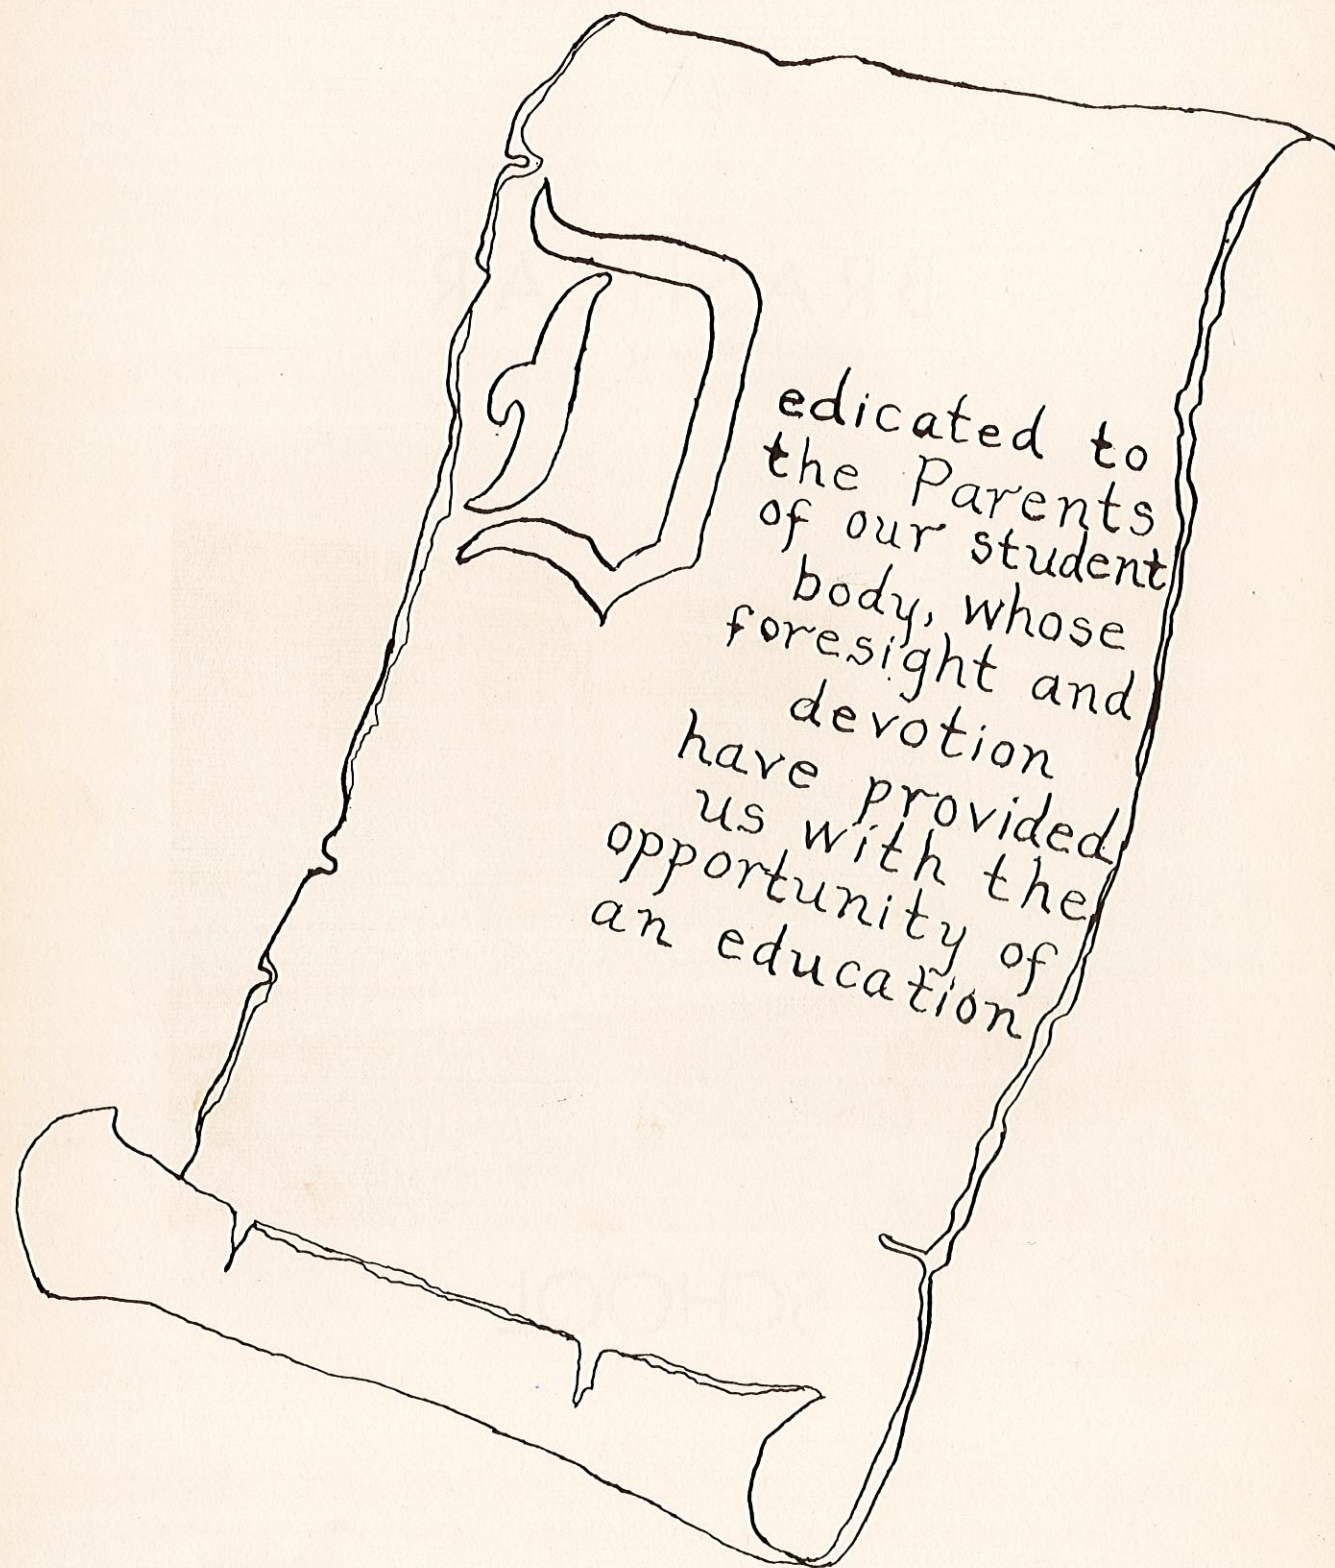 Dedicated to
the Parents
of our student
body, whose
foresight and
devotion
have provided
us with the
opportunity of
an education